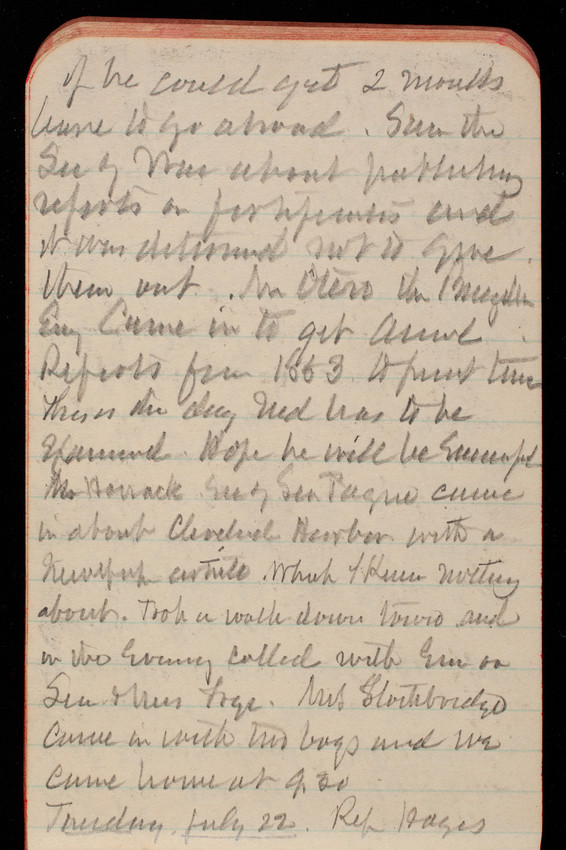 if he could get 2 months
leave to go abroad. Saw the
Secy War about publishing
reports on fortifications and
it was determined not to give
them out. Mr Otero the
Eng Came in to get annl
Reports from 1883 to present time
this is the day Ned has to be
Examined. Hope he will be Successful
Mr Horrack Secy Sen Payne came
in about Cleveland Harbor with a
Newspap article Which I Knew nothing
about. Took a walk down town and
in the Evening called with Em on
Sen & Mrs Frye. Mrs Stockbridge
came in with two boys and we
came home at 9.30
Tuesday July 22. Rep Hayes